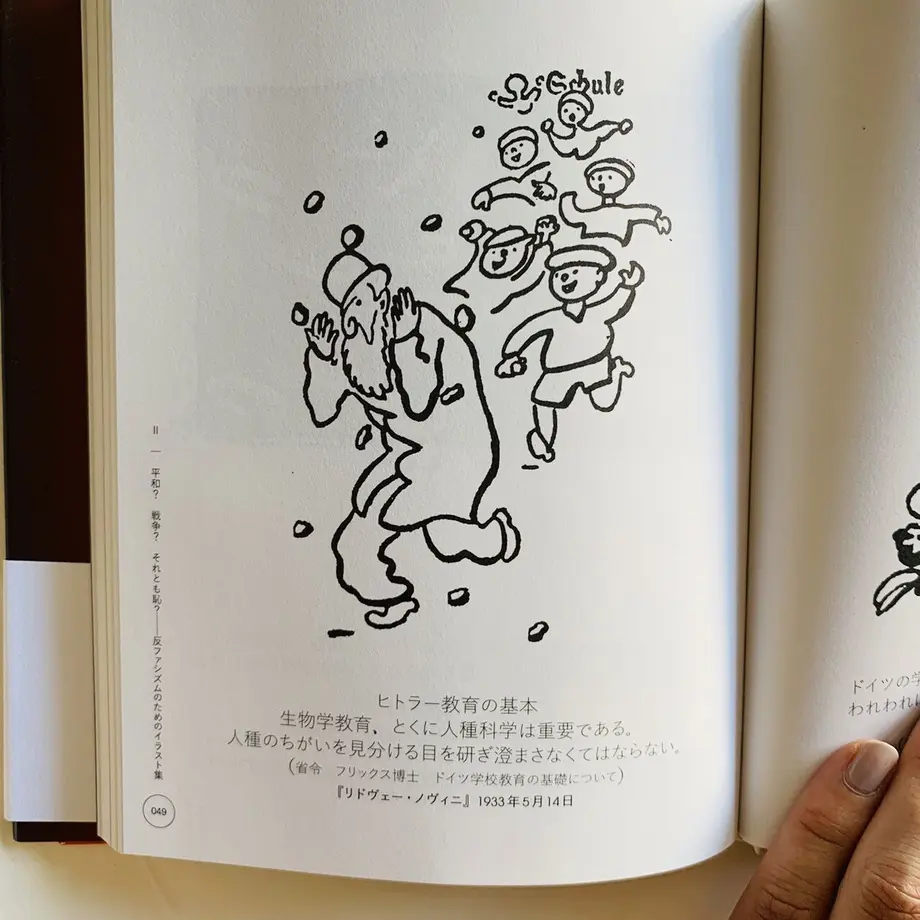 Schule
ヒトラー教育の基本
生物学教育、とくに人種科学は重要である。
人種のちがいを見分ける目を研ぎ澄まさなくてはならない。
(省令 フリックス博士 ドイツ学校教育の基礎について)
『リドヴェー・ノヴィニ』1933年5月14日
II — 平和? 戦争? それとも恥?——反ファシズムのためのイラスト集
049
ドイツの学
われわれに